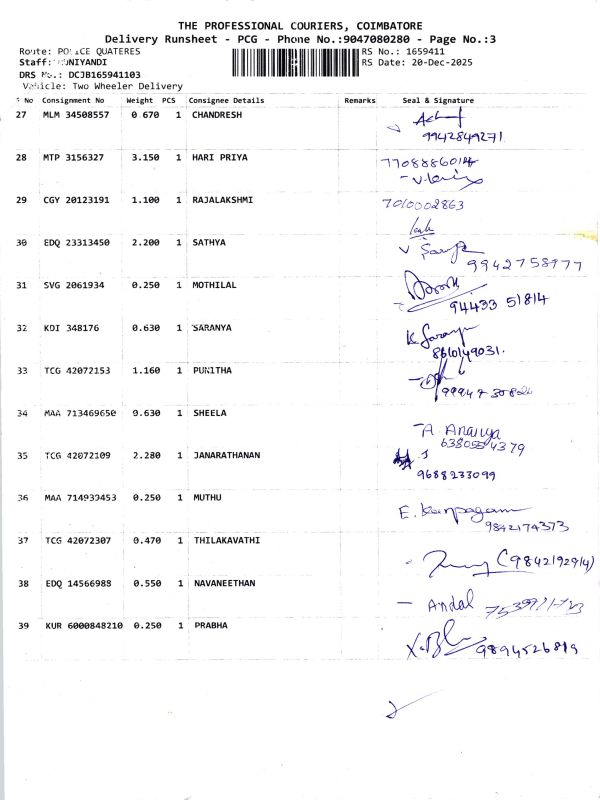 THE PROFESSIONAL COURIERS, COIMBATORE
Delivery Runsheet - PCG - Phone No.:9047080280 - Page No.:3
Route: POLICE QUATERES RS No.: 1659411
Staff: MUNIYANDI RS Date: 20-Dec-2025
DRS No.: DCJB165941103
Vehicle: Two Wheeler Delivery
S No Consignment No Weight PCS Consignee Details Remarks Seal & Signature
27 MLM 34508557 0.670 1 CHANDRESH
9942849271
28 MTP 3156327 3.150 1 HARI PRIYA 7708886014
29 CGY 20123191 1.100 1 RAJALAKSHMI 7010002863
30 EDQ 23313450 2.200 1 SATHYA
9942758977
31 SVG 2061934 0.250 1 MOTHILAL
94433 51814
32 KDI 348176 0.630 1 SARANYA K. Saranya
8610149031.
33 TCG 42072153 1.160 1 PUNITHA
34 MAA 713469650 9.630 1 SHEELA A. Ananya
6380554379
35 TCG 42072109 2.280 1 JANARATHANAN
9688233099
36 MAA 714939453 0.250 1 MUTHU E. Karpagam
9842174373
37 TCG 42072307 0.470 1 THILAKAVATHI
(9842192914)
38 EDQ 14566988 0.550 1 NAVANEETHAN - Andal
39 KUR 6000848210 0.250 1 PRABHA
9894526819